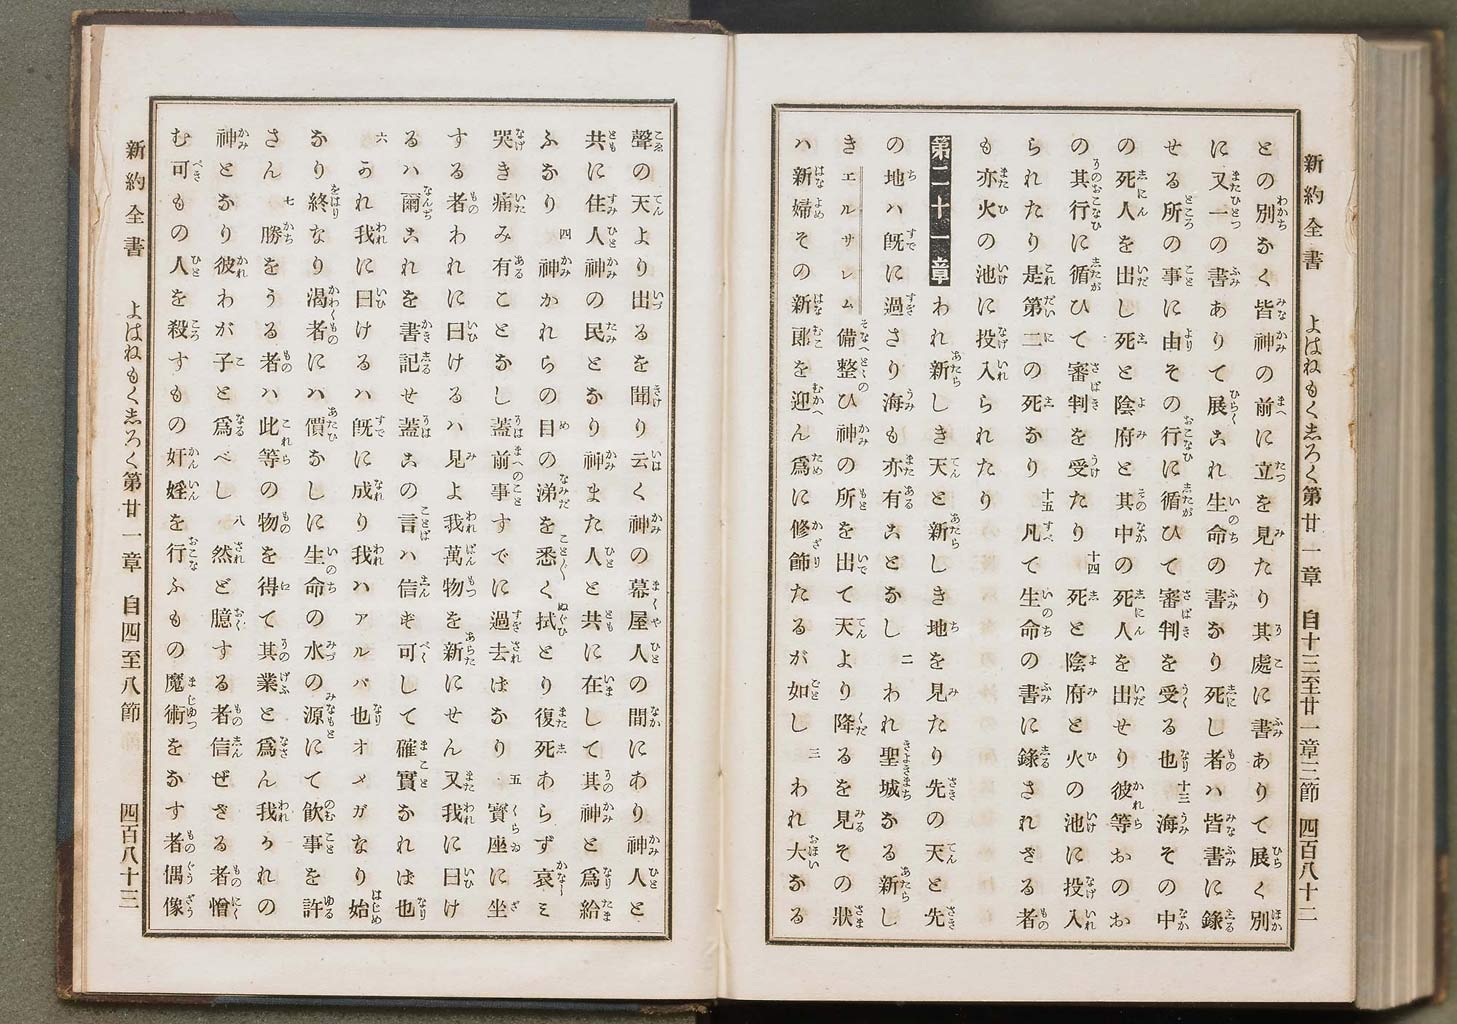 新約全書　よはねもくしろく第廿一章　自十三至廿一章三節　四百八十二
との別なく皆神の前に立を見たり其處に書ありて展く別
に又一の書ありて展これ生命の書なり死し者ハ皆書に錄
せる所の事に由その行に循ひて審判を受る也 十三 海その中
の死人を出し死と陰府と其中の死人を出せり彼等おのお
の其行に循ひて審判を受たり 十四 死と陰府と火の池に投入
られたり是第二の死なり 十五 凡て生命の書に錄されざる者
も亦火の池に投入られたり
第二十一章 われ新しき天と新しき地を見たり先の天と先
の地ハ既に過さり海も亦有ことなし 二 われ聖城なる新し
きエルサレム備整ひ神の所を出て天より降るを見その狀
ハ新婦その新郎を迎ん爲に修飾たるが如し 三 われ大なる
聲の天より出るを聞り云く神の幕屋人の間にあり神人と
共に住人神の民となり神また人と共に在して其神と爲給
ふなり 四 神かれらの目の涕を悉く拭とり復死あらず哀ミ
哭き痛み有ことなし蓋前事すでに過去ばなり 五 寳座に坐
する者われに曰けるハ見よ我萬物を新にせん又我に曰け
るハ爾これを書記せ蓋この言ハ信ず可して確實なれば也
六 かれ我に曰けるハ既に成り我ハアルパ也オメガなり始
なり終なり渴者にハ價なしに生命の水の源にて飮事を許
さん 七 勝をうる者ハ此等の物を得て其業と爲ん我かれの
神となり彼わが子と爲べし 八 然ど臆する者信ぜざる者憎
む可もの人を殺すもの奸婬を行ふもの魔術をなす者偶像
新約全書　よはねもくしろく第廿一章　自四至八節　四百八十三